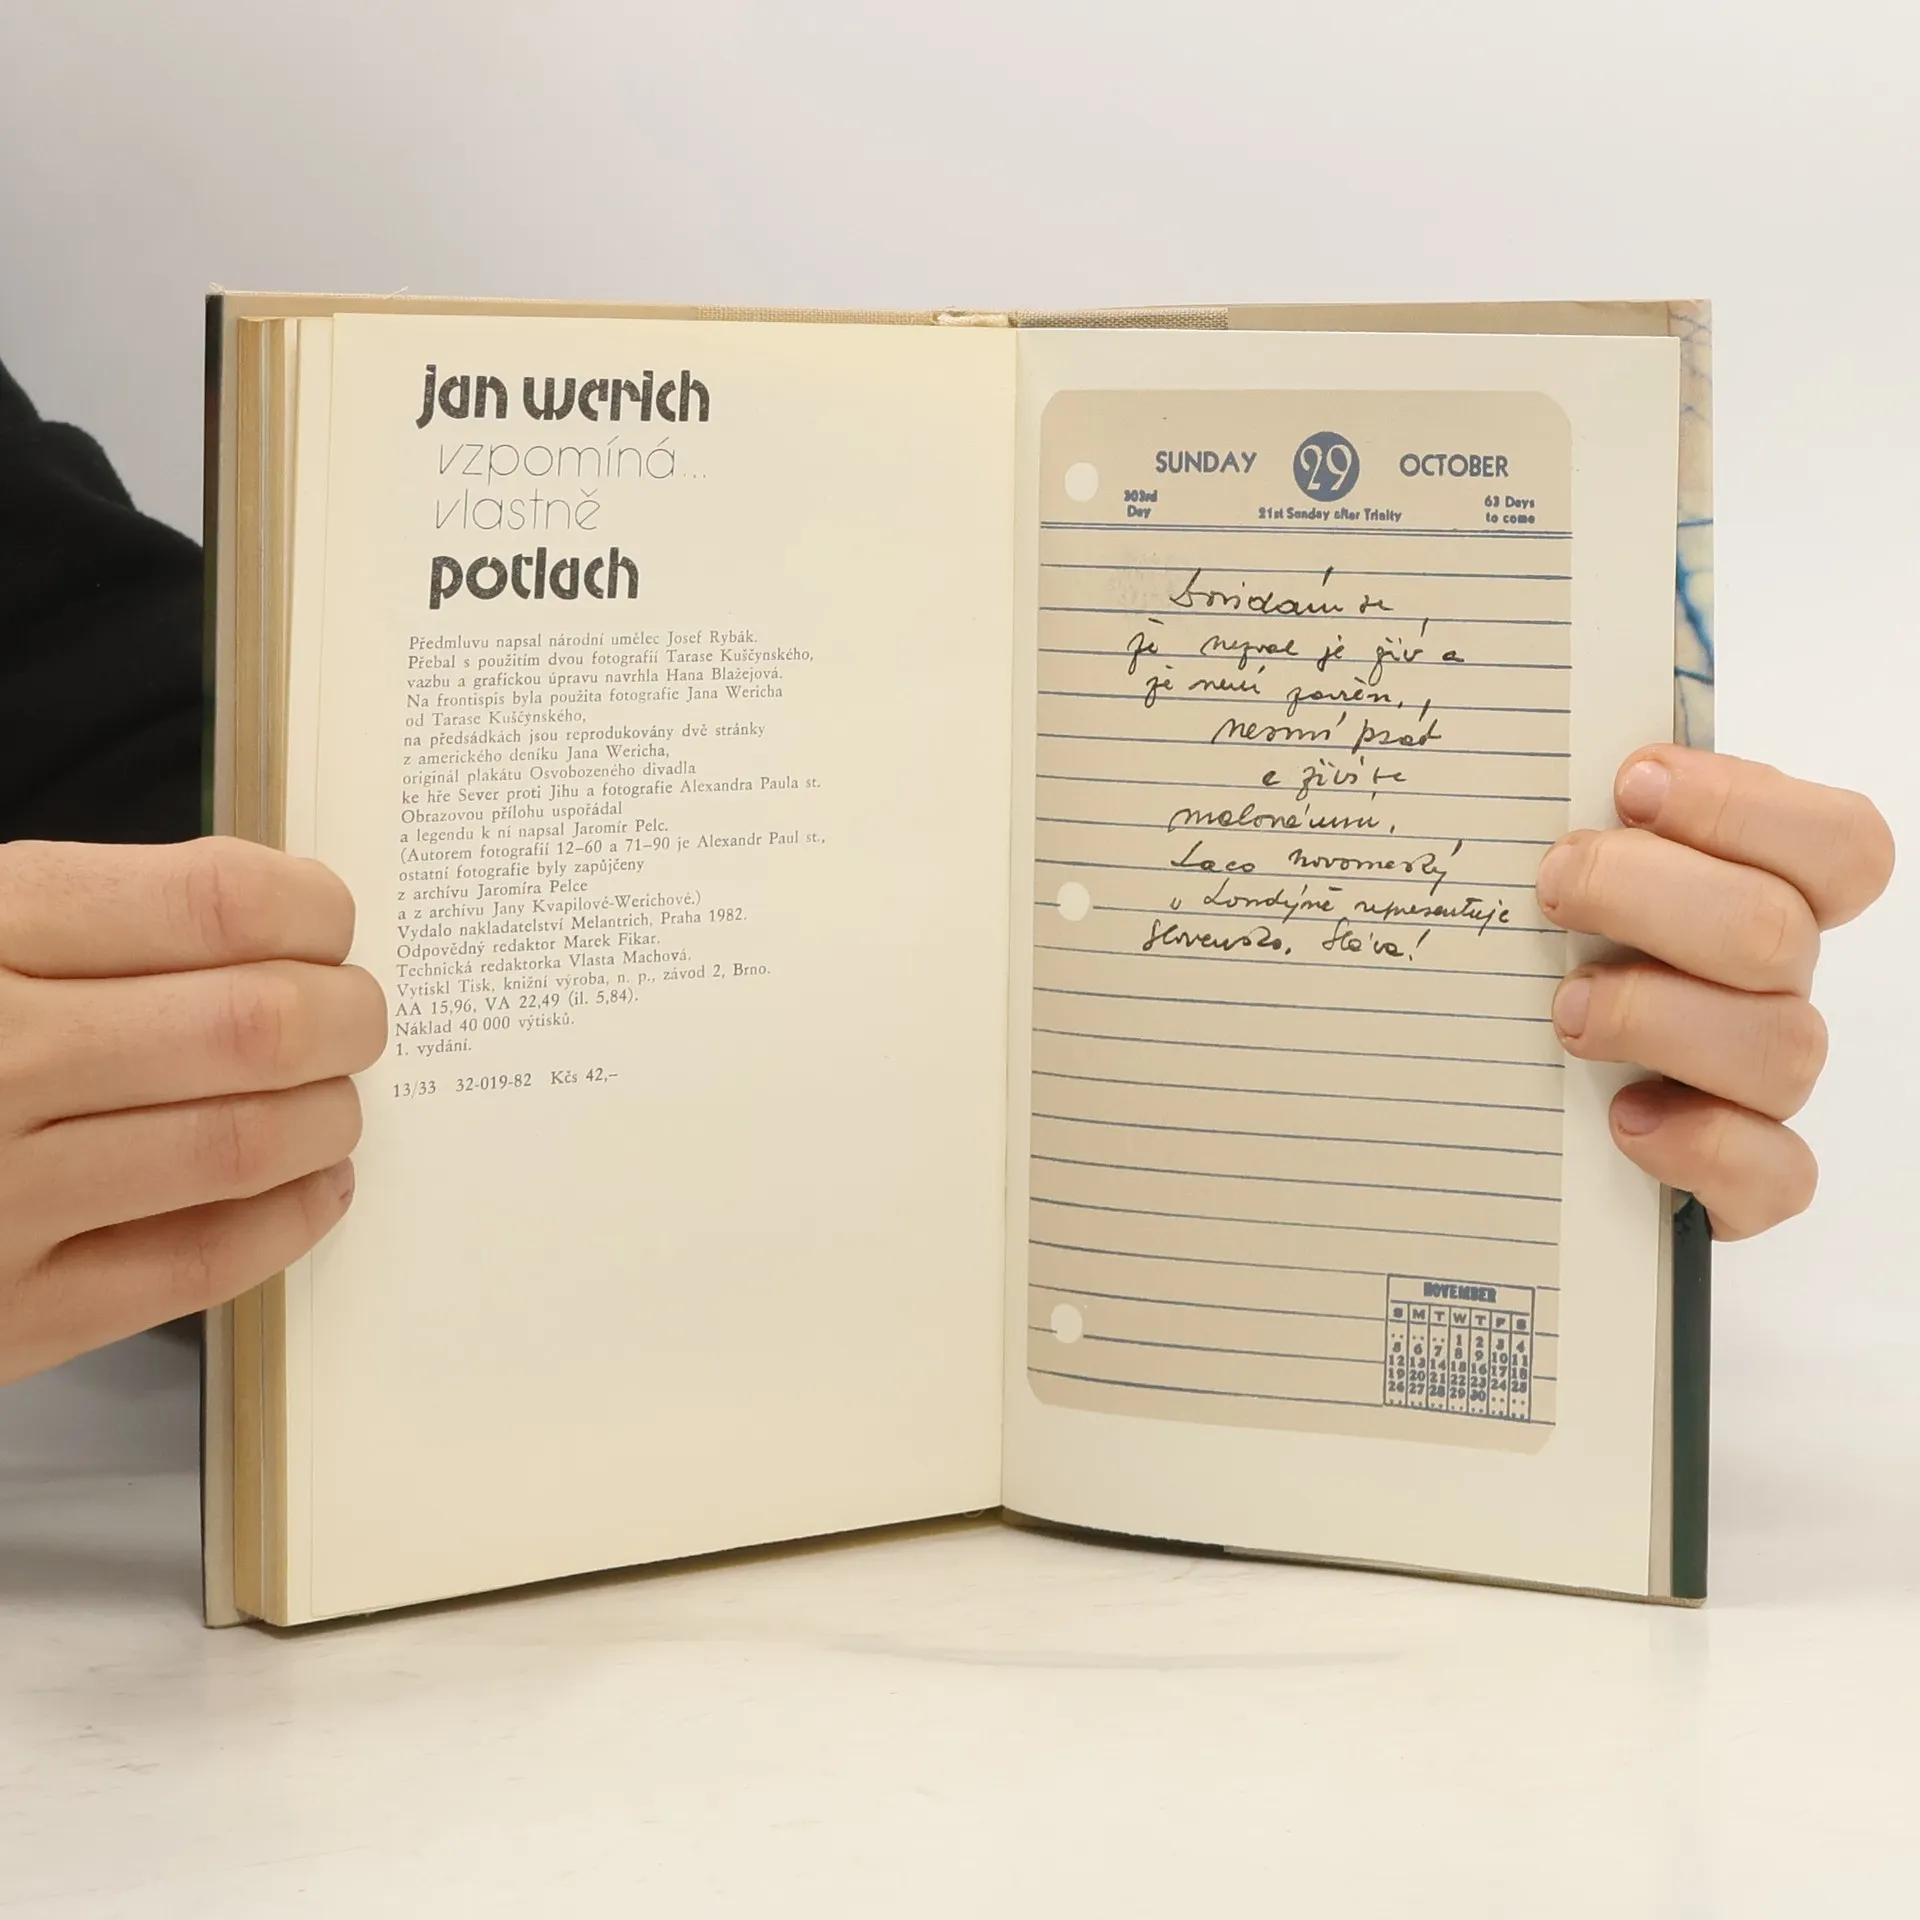 jan werich
vzpomíná...
vlastně
potlach
Předmluvu napsal národní umělec Josef Rybák.
Přebal s použitím dvou fotografií Tarase Kuščynského,
vazbu a grafickou úpravu navrhla Hana Blažejová.
Na frontispis byla použita fotografie Jana Wericha
od Tarase Kuščynského,
na předsádkách jsou reprodukovány dvě stránky
z amerického deníku Jana Wericha,
originál plakátu Osvobozeného divadla
ke hře Sever proti Jihu a fotografie Alexandra Paula st.
Obrazovou přílohu uspořádal
a legendu k ní napsal Jaromír Pelc.
(Autorem fotografií 12–60 a 71–90 je Alexandr Paul st.,
ostatní fotografie byly zapůjčeny
z archívu Jaromíra Pelce
a z archívu Jany Kvapilové-Werichové.)
Vydalo nakladatelství Melantrich, Praha 1982.
Odpovědný redaktor Marek Fikar.
Technická redaktorka Vlasta Machová.
Vytiskl Tisk, knižní výroba, n. p., závod 2, Brno.
AA 15,96, VA 22,49 (il. 5,84).
Náklad 40 000 výtisků.
1. vydání.
13/33 32-019-82 Kčs 42,–
SUNDAY 29 OCTOBER
303rd Day 21st Sunday after Trinity 63 Days to come
Dovídám se,
že nezval je živ a
že není zavřen,
nesmí psát
a živí se
malováním.
Laco Novomeský
v Londýně representuje
Slovensko. Sláva!
NOVEMBER
S M T W T F S
.. .. .. 1 2 3 4
5 6 7 8 9 10 11
12 13 14 15 16 17 18
19 20 21 22 23 24 25
26 27 28 29 30 .. ..